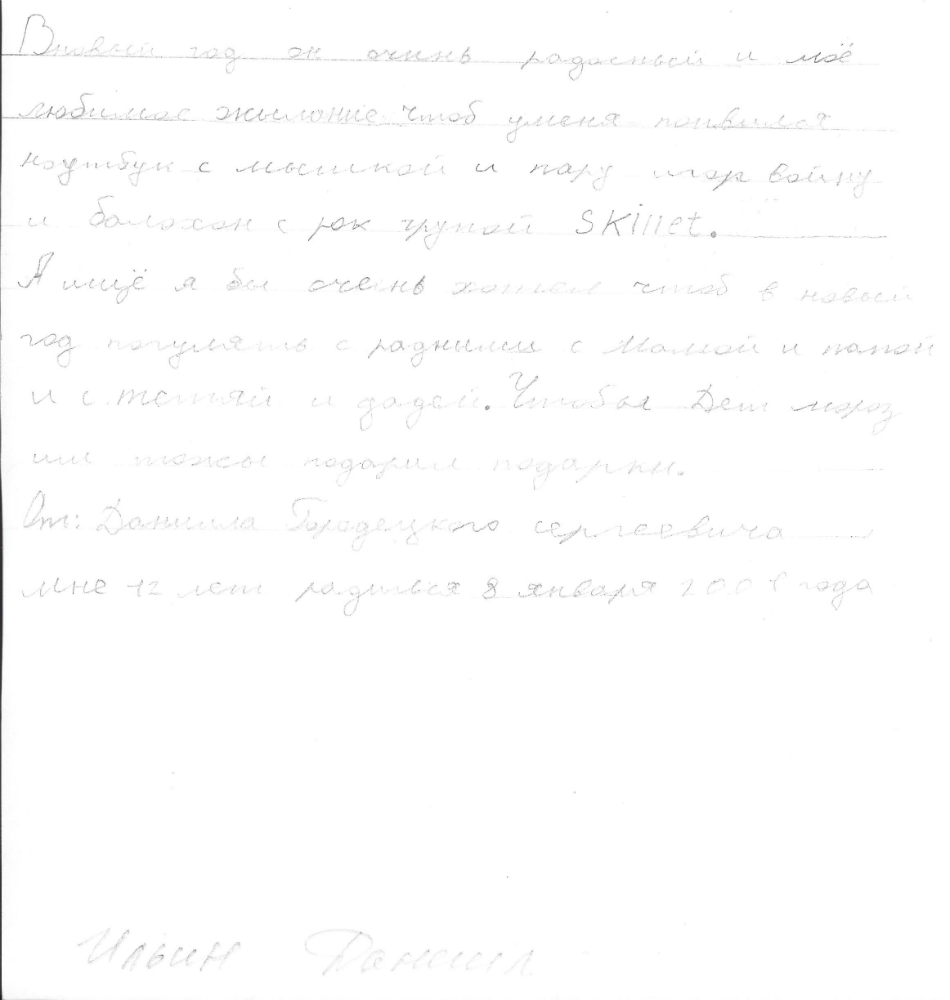 Вновый год он очинь радосный и моё
любимое жылание чтоб уменя поивился
ноутбук с мышкой и пару игор войну
и балахон с рок групой Skillet.
А ищё я бы очень хотел чтоб в новый
год погулять с радними с Мамой и папой
и с тётяй и дядей. Чтобы Дет мороз
им тожы подарил подарки.
От: Даниила Городецкого сергеевича
мне 12 лет радился 8 января года
Ильин Даниил